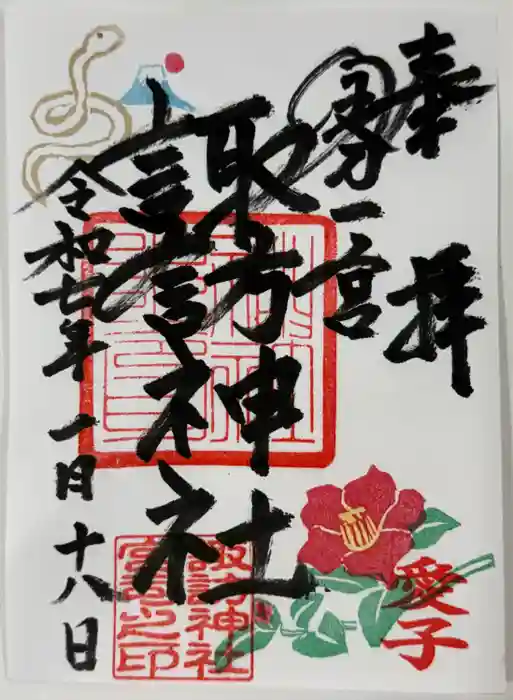 奉拝
一宮
諏訪神社
令和七年一月十八日
愛子
諏訪神社
宮司之印